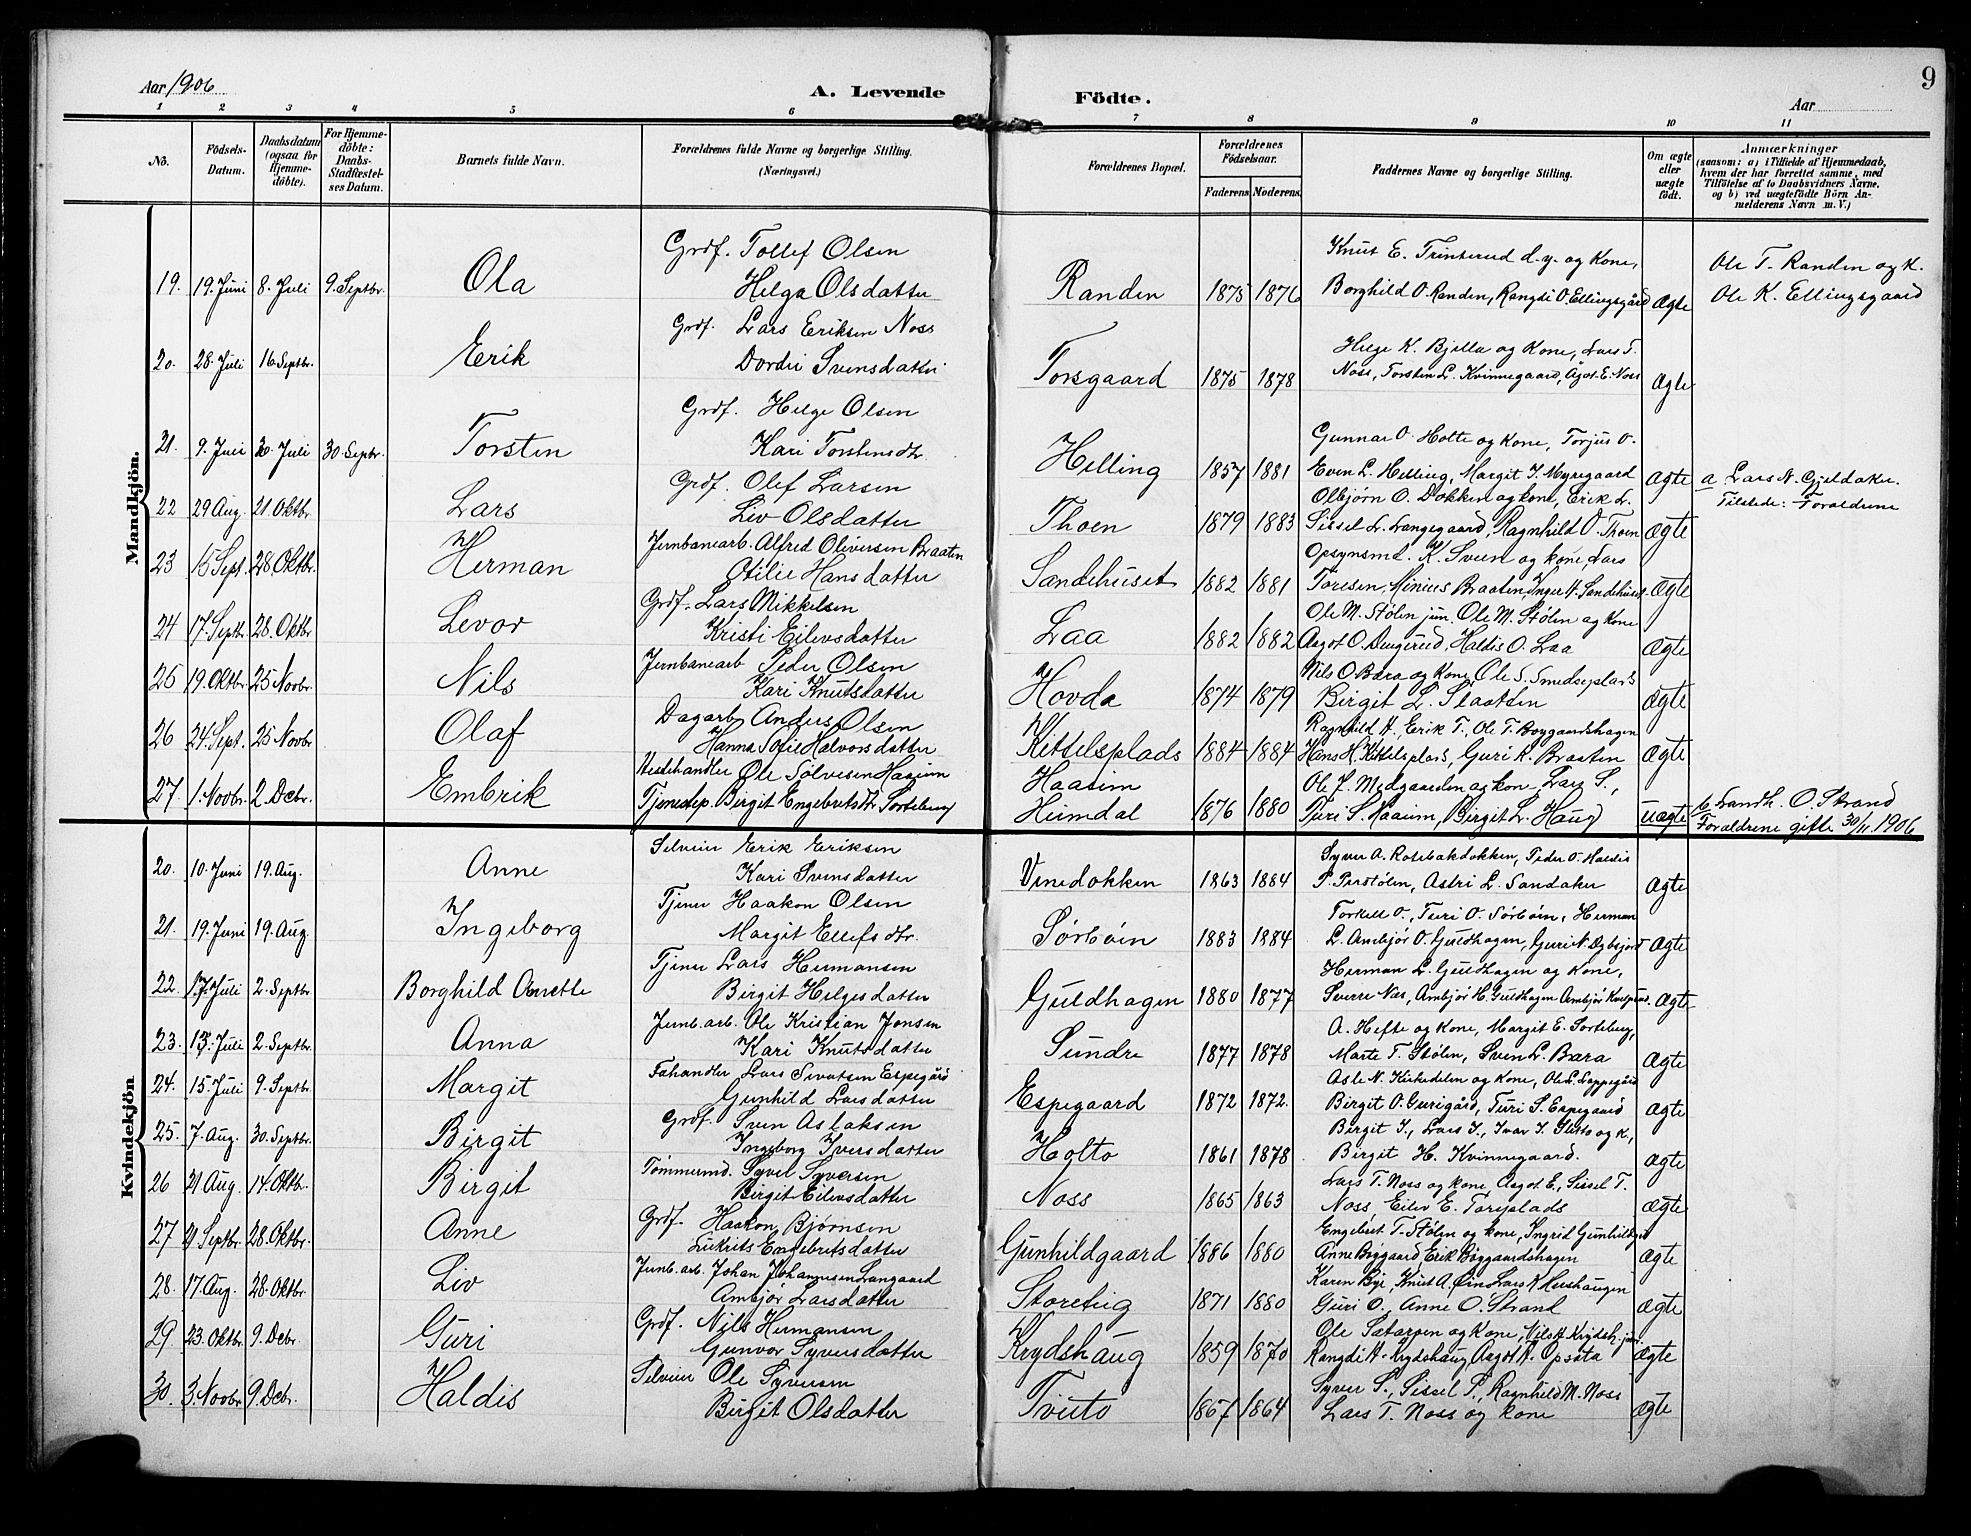 Aar 1906
A. Levende Födte.
Aar
9
1 2 3 4 5 6 7 8 9 10 11
No.
Födsels-Datum.
Daabsdatum (ogsaa for Hjemme-döbte).
For Hjemme-döbte: Daabs-Stadfæstel-ses Datum.
Barnets fulde Navn.
Forældrenes fulde Navne og borgerlige Stilling. (Næringsvei.)
Forældrenes Bopæl.
Forældrenes Födselsaar.
Faderens Moderens.
Faddernes Navne og borgerlige Stilling.
Om ægte eller uægte födt.
Anmærkninger (saasom: a) i Tilfælde af Hjemmedaab, hvem der har forrettet samme, med Tilföielse af to Daabsvidners Navne, og b) ved uægtefödte Börn An-melderens Navn m. V.)
Mandkjön.
19. 19. Juni 8. Juli 9. Septbr. Ola Grdf. Tollef Olsen
Helga Olsdatter Randen 1875 1876 Knut E. Trinterud d.y. og Kone,
Borghild O. Randen, Rangdi O. Ellingsgård Ægte Ole T. Randen og K.
Ole K. Ellingsgaard
20. 28. Juli 16 Septbr. Erik Grdf. Lars Eriksen Noss
Dordei Svensdatter Torsgaard 1875 1878 Helge K. Bjella og Kone, Lars T.
Noss, Torsten L. Kvinnegaard, Agot E. Noss Ægte
21. 9. Juli 30 Septbr. Torsten Grdf. Helge Olsen
Kari Torstensdtr. Helling 1857 1881 Gunnar O. Holte og Kone, Torjus O.
Even L. Helling, Margit T. Myrgaard Ægte a Lars N. Gjeldaker.
Tilstede: Forældrene
22 29 Aug. 21. Oktbr. Lars Grdf. Olef Larsen
Liv Olsdatter Thoen 1879 1883 Olbjørn O. Dokken og kone, Erik L.
Sissel L. Langegaard, Ragnhild O. Thoen Ægte
23 Sept. 28 Oktbr. Herman Jernbanearb. Alfred Oliversen Braaten
Otilie Hansdatter Sandehuset 1882 1881 Opsynsmd. K. Sveen og kone, Lars
Toresen, Minius Braaten, Inger H. Sandehuset Ægte
24 17. Septbr. 28. Oktbr Levor Grdf. Lars Mikkelsen
Kristi Eilevsdatter Laa 1882 1882 Ole M. Stølen jun. Ole M. Stølen og kone
Aagot O. Dengerud, Haldis O. Laa Ægte
25 19. Oktbr. 25 Novbr. Nils Jernbanearb Peder Olsen
Kari Knutsdatter Hovda 1874 1879 Nils O. Bæra og Kone, Ole S. Smedseplads
Birgit L. Slaatten Ægte
26 24. Sept. 25 Novbr Olaf Dagarb. Anders Olsen
Hanna Sofie Halvorsdatter Kittelsplads 1884 1884 Ragnhild H., Erik T., Ole T. Bøygaardshagen
Hans H. Kittelsplads, Guri K. Braaten Ægte
27 1. Novbr. 2. Decbr. Embrik Hestehandler Ole Sølvesen Haaeim
Tjenestep. Birgit Engebretsdtr. Sorteberg Haaeim
Heimdal 1876 1880 Ole J. Medgaarden og kone, Lars S.,
Turi S. Haaeim, Birgit L. Haug Uægte b. Landh. O. Strand
Forældrene gifte 30/11. 1906
Kvindekjön
20. 10. Juni 19. Aug. Anne Selveier Erik Eriksen
Kari Svensdatter Vinedokken 1863 1884 Syver A. Rotebakdokken, Peder O. Haldis
P. Perstølen, Astri L. Sandaker Ægte
21. 19. Juni 19. Aug. Ingeborg Tjener Haakon Olsen
Margit Ellefsdtr. Sørbøin 1883 1884 Torkell O., Turi O. Sørbøin, Herman
L. Ambjør O. Guldhagen, Guri N. Ægte
22. 17. Juli 2. Septbr Borghild Anette Tjener Lars Hermansen
Birgit Helgesdatter Guldhagen 1880 1877 Herman L. Guldhagen og Kone,
Sverre Næs, Ambjør H. Guldhagen Ægte
23. 13. Juli 2. Septbr. Anna Jernb.arb. Ole Kristian Jonsen
Kari Knutsdatter Sundre 1877 1878 A. Hefte og Kone, Margit E. Sorteberg,
Marte T. Stølen, Sven L. Bæra Ægte
24. 15. Juli 9. Septbr Margit Fahandler Lars Sivatsen Espegård
Gunhild Larsdatter Espegaard 1872 1872. Asle N. Kirkedelen og Kone, Ole L. Loppegård
Birgit O. Gurigård, Turi S. Espegaard Ægte
25. 7. Aug. 30. Septbr. Birgit Grdf. Sven Aslaksen
Ingeborg Iversdatter Holto 1861 1878 Birgit I., Lars I., Ivar I. Sletto og K,
Birgit H. Kvinnegaard. Ægte
26 21 Aug. 14. Oktbr. Birgit Tømmermd. Syver Syversen
Birgit Eilevsdatter Noss 1865 1863 Lars T. Noss og kone Aagot E., Sissel T.
Noss, Eilev E. Torsplads Ægte
27 21 Septbr. 28. Oktbr. Anne Grdf. Haakon Bjørnsen
Engebretsdatter Gunhildgaard 1886 1880 Engebret T. Stølen og kone, Ingrid Gunhildgrd
Anne Bøygaard Erik Bøygaardshagen Ægte
28. 17. Aug. 28. Oktbr. Liv Jernb.arb. Johan Johannesen Langaard
Ambjør Larsdatter Storeteig 1871 1880 Karen Bye, Knut A. Øin Lars K. Hershaugen
Guri O., Anne O. Strand Ægte
29 23. Oktbr. 9. Decbr. Guri Grdf. Nils Hermansen
Gunvor Syversdatter Krydshaug 1859 1870 Ole Satarøen og Kone, Nils H. Krydsh. jun.
Rangdi H. Krydshaug, Aagot H. Opsata Ægte
30. 3. Novbr. 9. Decbr. Haldis Selveier Ole Syversen
Birgit Olsdatter Tveito 1867 1864 Syver S., Sissel S., Ragnhild M. Noss
Lars T. Noss og kone Ægte